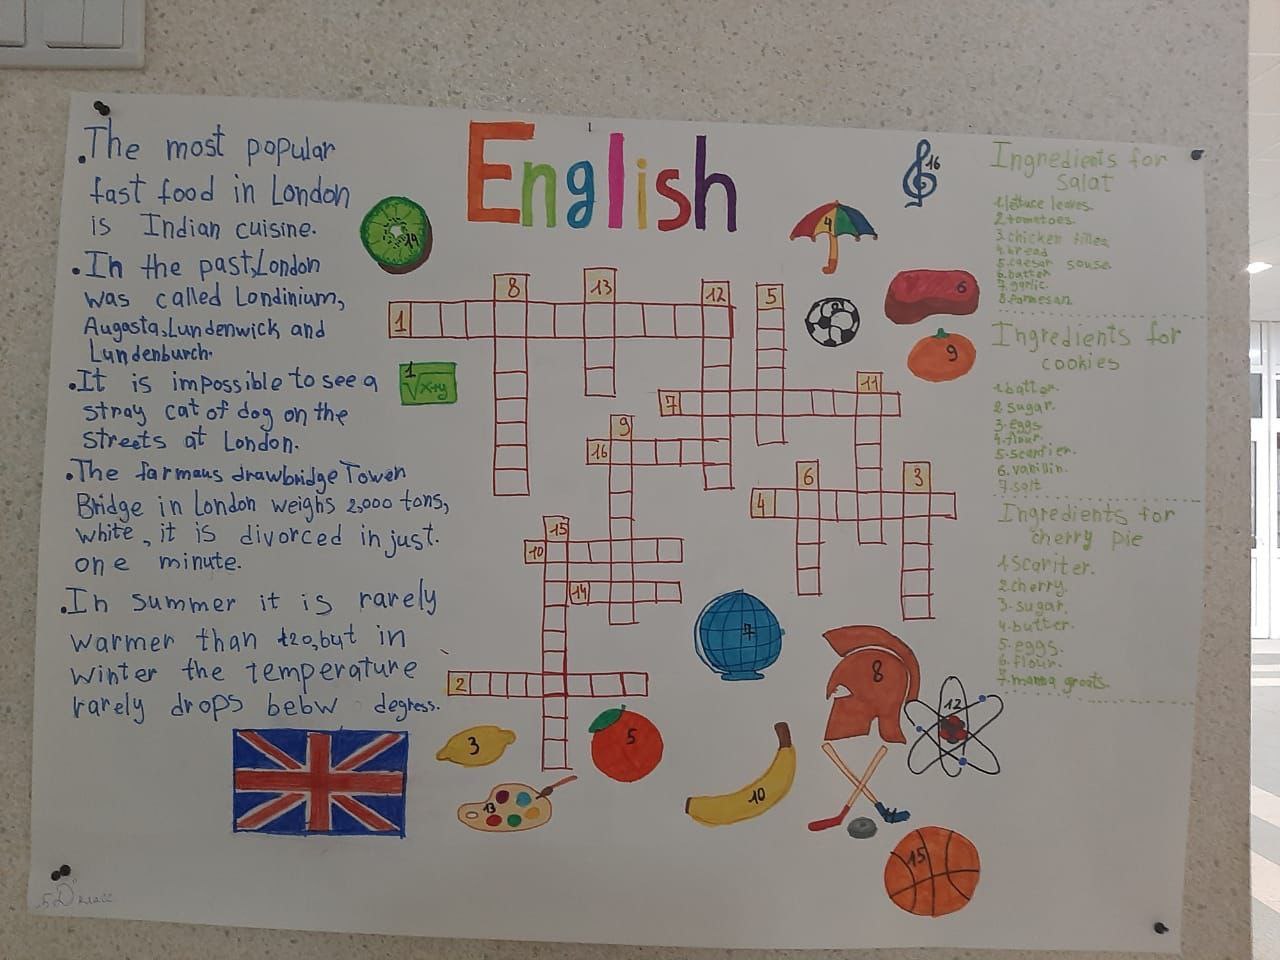 English
.The most popular
fast food in London
is Indian cuisine.
.In the past,London
was called Londinium,
Augasta,Lundenwick and
Lundenburch.
.It is impossible to see a
stray cat of dog on the
streets at London.
.The farmaus drawbridge Tower
Bridge in London weighs 2,000 tons,
white, it is divorced in just.
one minute.
.In summer it is rarely
warmer than t20,but in
winter the temperature
rarely drops bebw degress.
5"D" класс
14
1
√x+y
16
4
6
9
8
13
12
5
1
7
11
9
16
6
3
4
15
10
14
2
7
8
12
3
5
13
10
11
15
Ingredients for
Salat
1.lettuce leaves.
2.tomatoes.
3.chicken fillea
4.bread
5.caesar souse
6.batter
7.garlic.
8.Parmesan
Ingredients for
cookies
1.batter.
2.sugar.
3.eggs
4.flour.
5.scarfier.
6.vanillin.
7.salt
Ingredients for
cherry pie
1.scariter.
2.cherry.
3.sugar.
4.butter.
5.eggs.
6.flour.
7.manna groats.